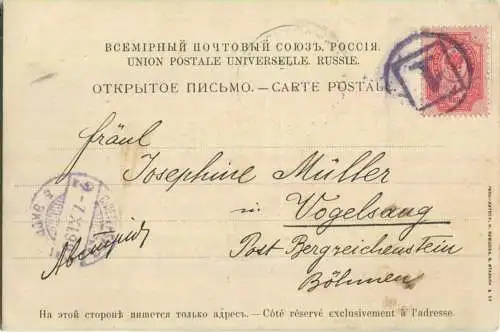 ВСЕМІРНЫЙ ПОЧТОВЫЙ СОЮЗЪ. РОССІЯ.
UNION POSTALE UNIVERSELLE. RUSSIE.
ОТКРЫТОЕ ПИСЬМО. — CARTE POSTALE
Fräul
Josephine Müller
in Vogelsang
Post Bergreichenstein
Böhmen
Австрія
На этой сторонѣ пишется только адресъ. — Côté réservé exclusivement à l'adresse.